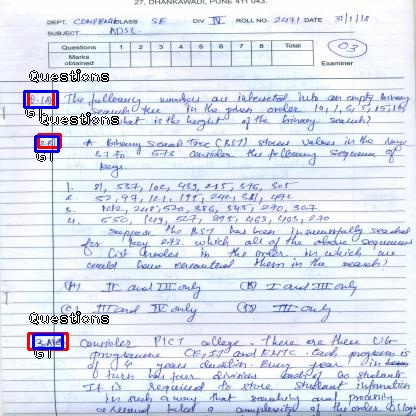 27, DHANKAWADI, PUNE 411 043.
DEPT. COMPENG CLASS SE DIV IV ROLL NO. 2471 DATE 31/1/18
SUBJECT ADSL
Questions 1 2 3 4 5 6 7 8 Total
Marks obtained
03
Examiner
Questions
Q.1A The following numbers are inserted into an empty binary
search tree in the given order 10, 1, 3, 5, 15, 12,
what is the height of the binary search?
Questions
A Binary Search Tree (BST) stores values in the range
37 to 573 consider the following sequence of
keys.
1. 81, 537, 102, 439, 285, 376, 305
2. 52, 97, 121, 195, 242, 381, 472
3. 142, 248, 520, 386, 345, 270, 307
4. 550, 149, 507, 395, 463, 402, 270
suppose the BST has been unsuccessfully searched
for key 273. which all of the above sequences
list nodes in the order in which we
could have encountered them in the search?
(A) II and III only (B) I and III only
(C) III and IV only (D) III only
Questions
Consider PICT college. There are three UG
programme CE, IT and ENTC. Each program is
of 4 years duration. Every year in
turn has four division each of 60 students.
It is required to store student information
in such a way that searching and
a complexity of the order O(log